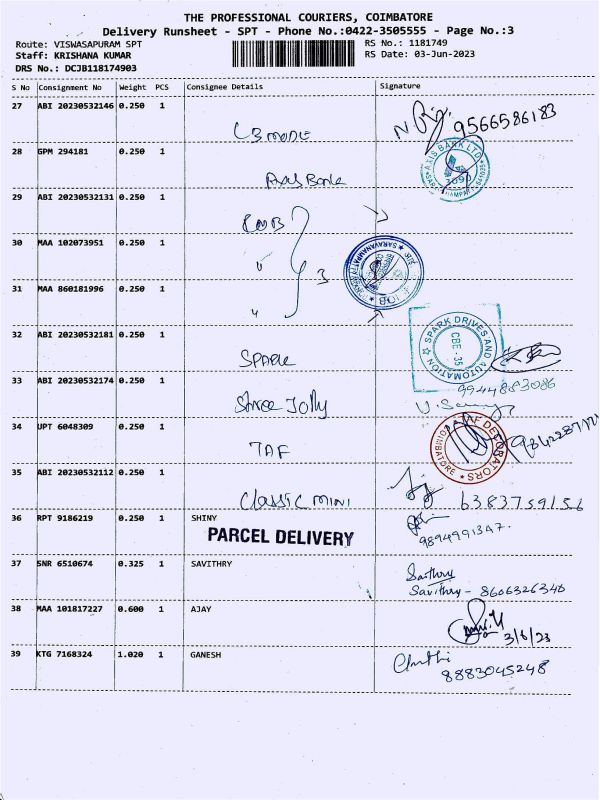 THE PROFESSIONAL COURIERS, COIMBATORE
Delivery Runsheet - SPT - Phone No.:0422-3505555 - Page No.:3
Route: VISWASAPURAM SPT
RS No.: 1181749
Staff: KRISHANA KUMAR
RS Date: 03-Jun-2023
DRS No.: DCJB118174903
S No Consignment No Weight PCS Consignee Details Signature
27 ABI 20230532146 0.250 1
9566586183
28 GPM 294181 0.250 1
Axis Bank
AXIS BANK LTD
29 ABI 20230532131 0.250 1
30 MAA 102073951 0.250 1
" 3
31 MAA 860181996 0.250 1
"
32 ABI 20230532181 0.250 1
SPARK
SPARK DRIVES AND AUTOMATION
CBE - 35
33 ABI 20230532174 0.250 1
Shree Jolly
9944883086
34 UPT 6048309 0.250 1
TAF
TAF DECORATORS
COIMBATORE
35 ABI 20230532112 0.250 1
Classic MINI
6383759156
36 RPT 9186219 0.250 1 SHINY
PARCEL DELIVERY
9894991347.
37 SNR 6510674 0.325 1 SAVITHRY
Savithry
Savithry - 8606326340
38 MAA 101817227 0.600 1 AJAY
3/6/23
39 KTG 7168324 1.020 1 GANESH
8883045248